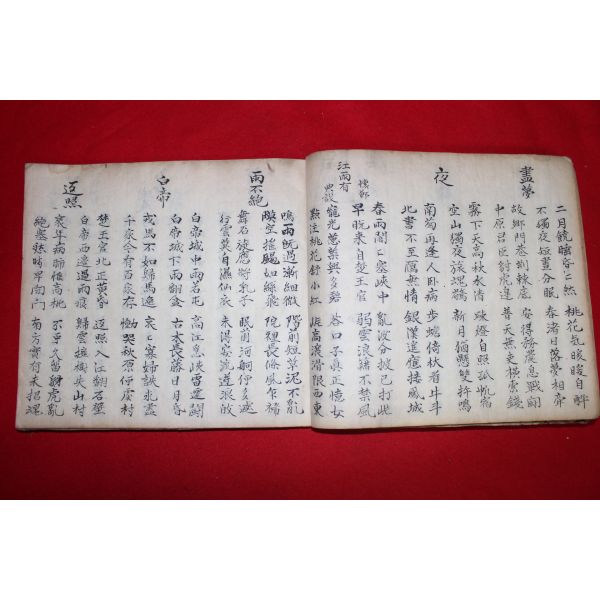 晝夢
二月饒睡昏々然 桃花氣暖眼自醉
不獨夜短晝分眠 春渚日落夢相牽
故鄕門巷荊棘底 安得務農息戰鬪
中原君臣豺虎邊 普天無吏橫索錢
夜
露下天高秋水清 疎燈自照孤帆宿
空山獨夜旅魂驚 新月猶懸雙杵鳴
南菊再逢人臥病 步蟾倚杖看牛斗
北書不至鴈無情 銀漢遙應接鳳城
江雨有懷鄭典設
春雨闇々塞峽中 亂波分披已打岸
早晩來自楚王宮 弱雲狼藉不禁風
寵光蕙葉與多碧 谷口子眞正憶汝
點注桃花舒小紅 岸高瀼滑限西東
雨不絶
鳴雨旣過漸細微 階前短草泥不亂
映空搖颺如絲飛 院裡長條風乍稀
舞石旋應將乳子 眼前
行雲莫自濕仙衣 未得安流逆浪
白帝
白帝城中雨若屯 高江急峽雷霆鬪
白帝城下雨翻盆 古木長藤日月昏
戎馬不如歸馬逸 哀々寡婦誅求盡
千家今有百家存 慟哭秋原何處村
返照
楚王宮北正黃昏 返照入江翻石壁
白帝西邊過雨痕 歸雲擁樹失山村
衰年病肺惟高枕 不可久留豺虎亂
絶塞愁時早閉門 南方實有未招魂